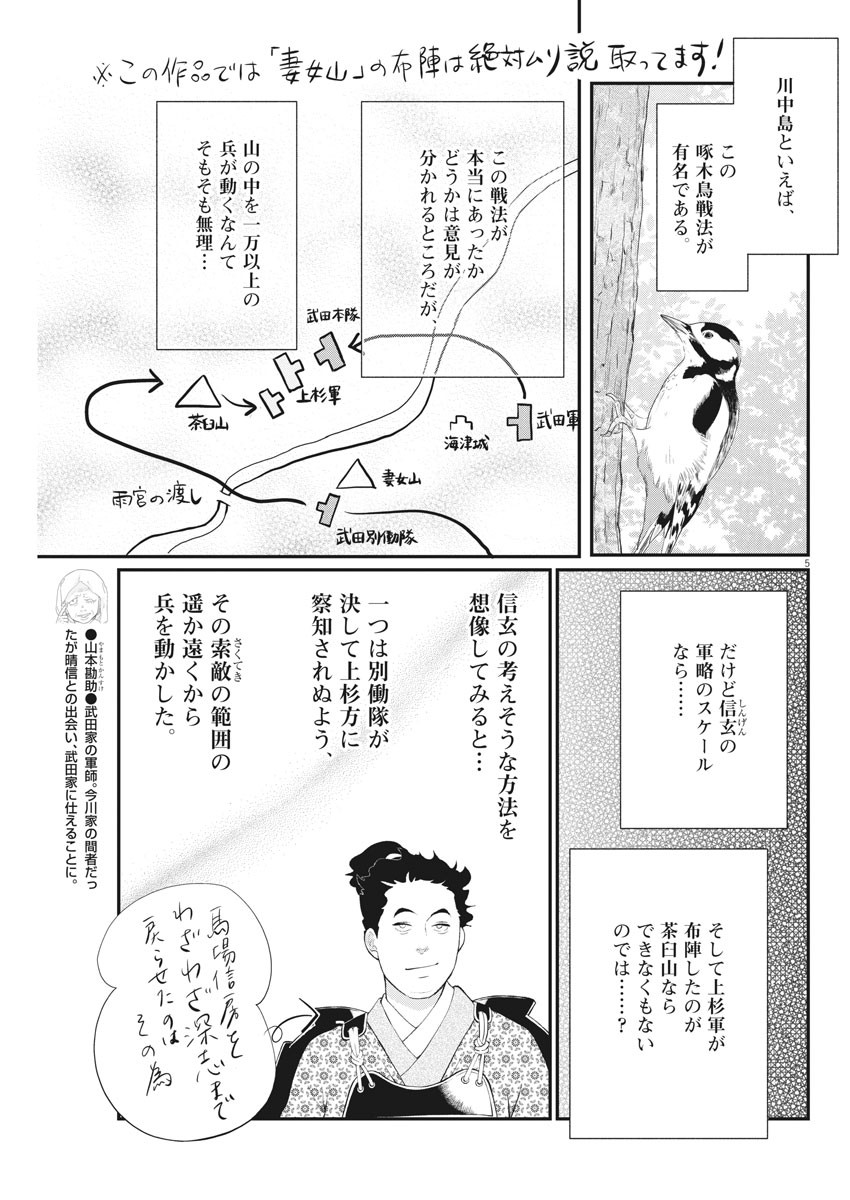 ※この作品では「妻女山」の布陣は絶対ムリ説 取ってます!
川中島といえば、
この
啄木鳥戦法が
有名である。
この戦法が
本当にあったか
どうかは意見が
分かれるところだが、
山の中を一万以上の
兵が動くなんて
そもそも無理…
武田本隊
上杉軍
茶臼山
武田軍
海津城
妻女山
雨宮の渡し
武田別働隊
5
だけど信玄の
しんげん
軍略のスケール
なら……
そして上杉軍が
布陣したのが
茶臼山なら
できなくもない
のでは……?
信玄の考えそうな方法を
想像してみると…
一つは別働隊が
決して上杉方に
察知されぬよう、
その索敵の範囲の
さくてき
遥か遠くから
兵を動かした。
馬場信房を
わざわざ深志まで
戻らせたのは
その為
●山本勘助●武田家の軍師。今川家の間者だっ
やまもとかんすけ
たが晴信との出会い、武田家に仕えることに。